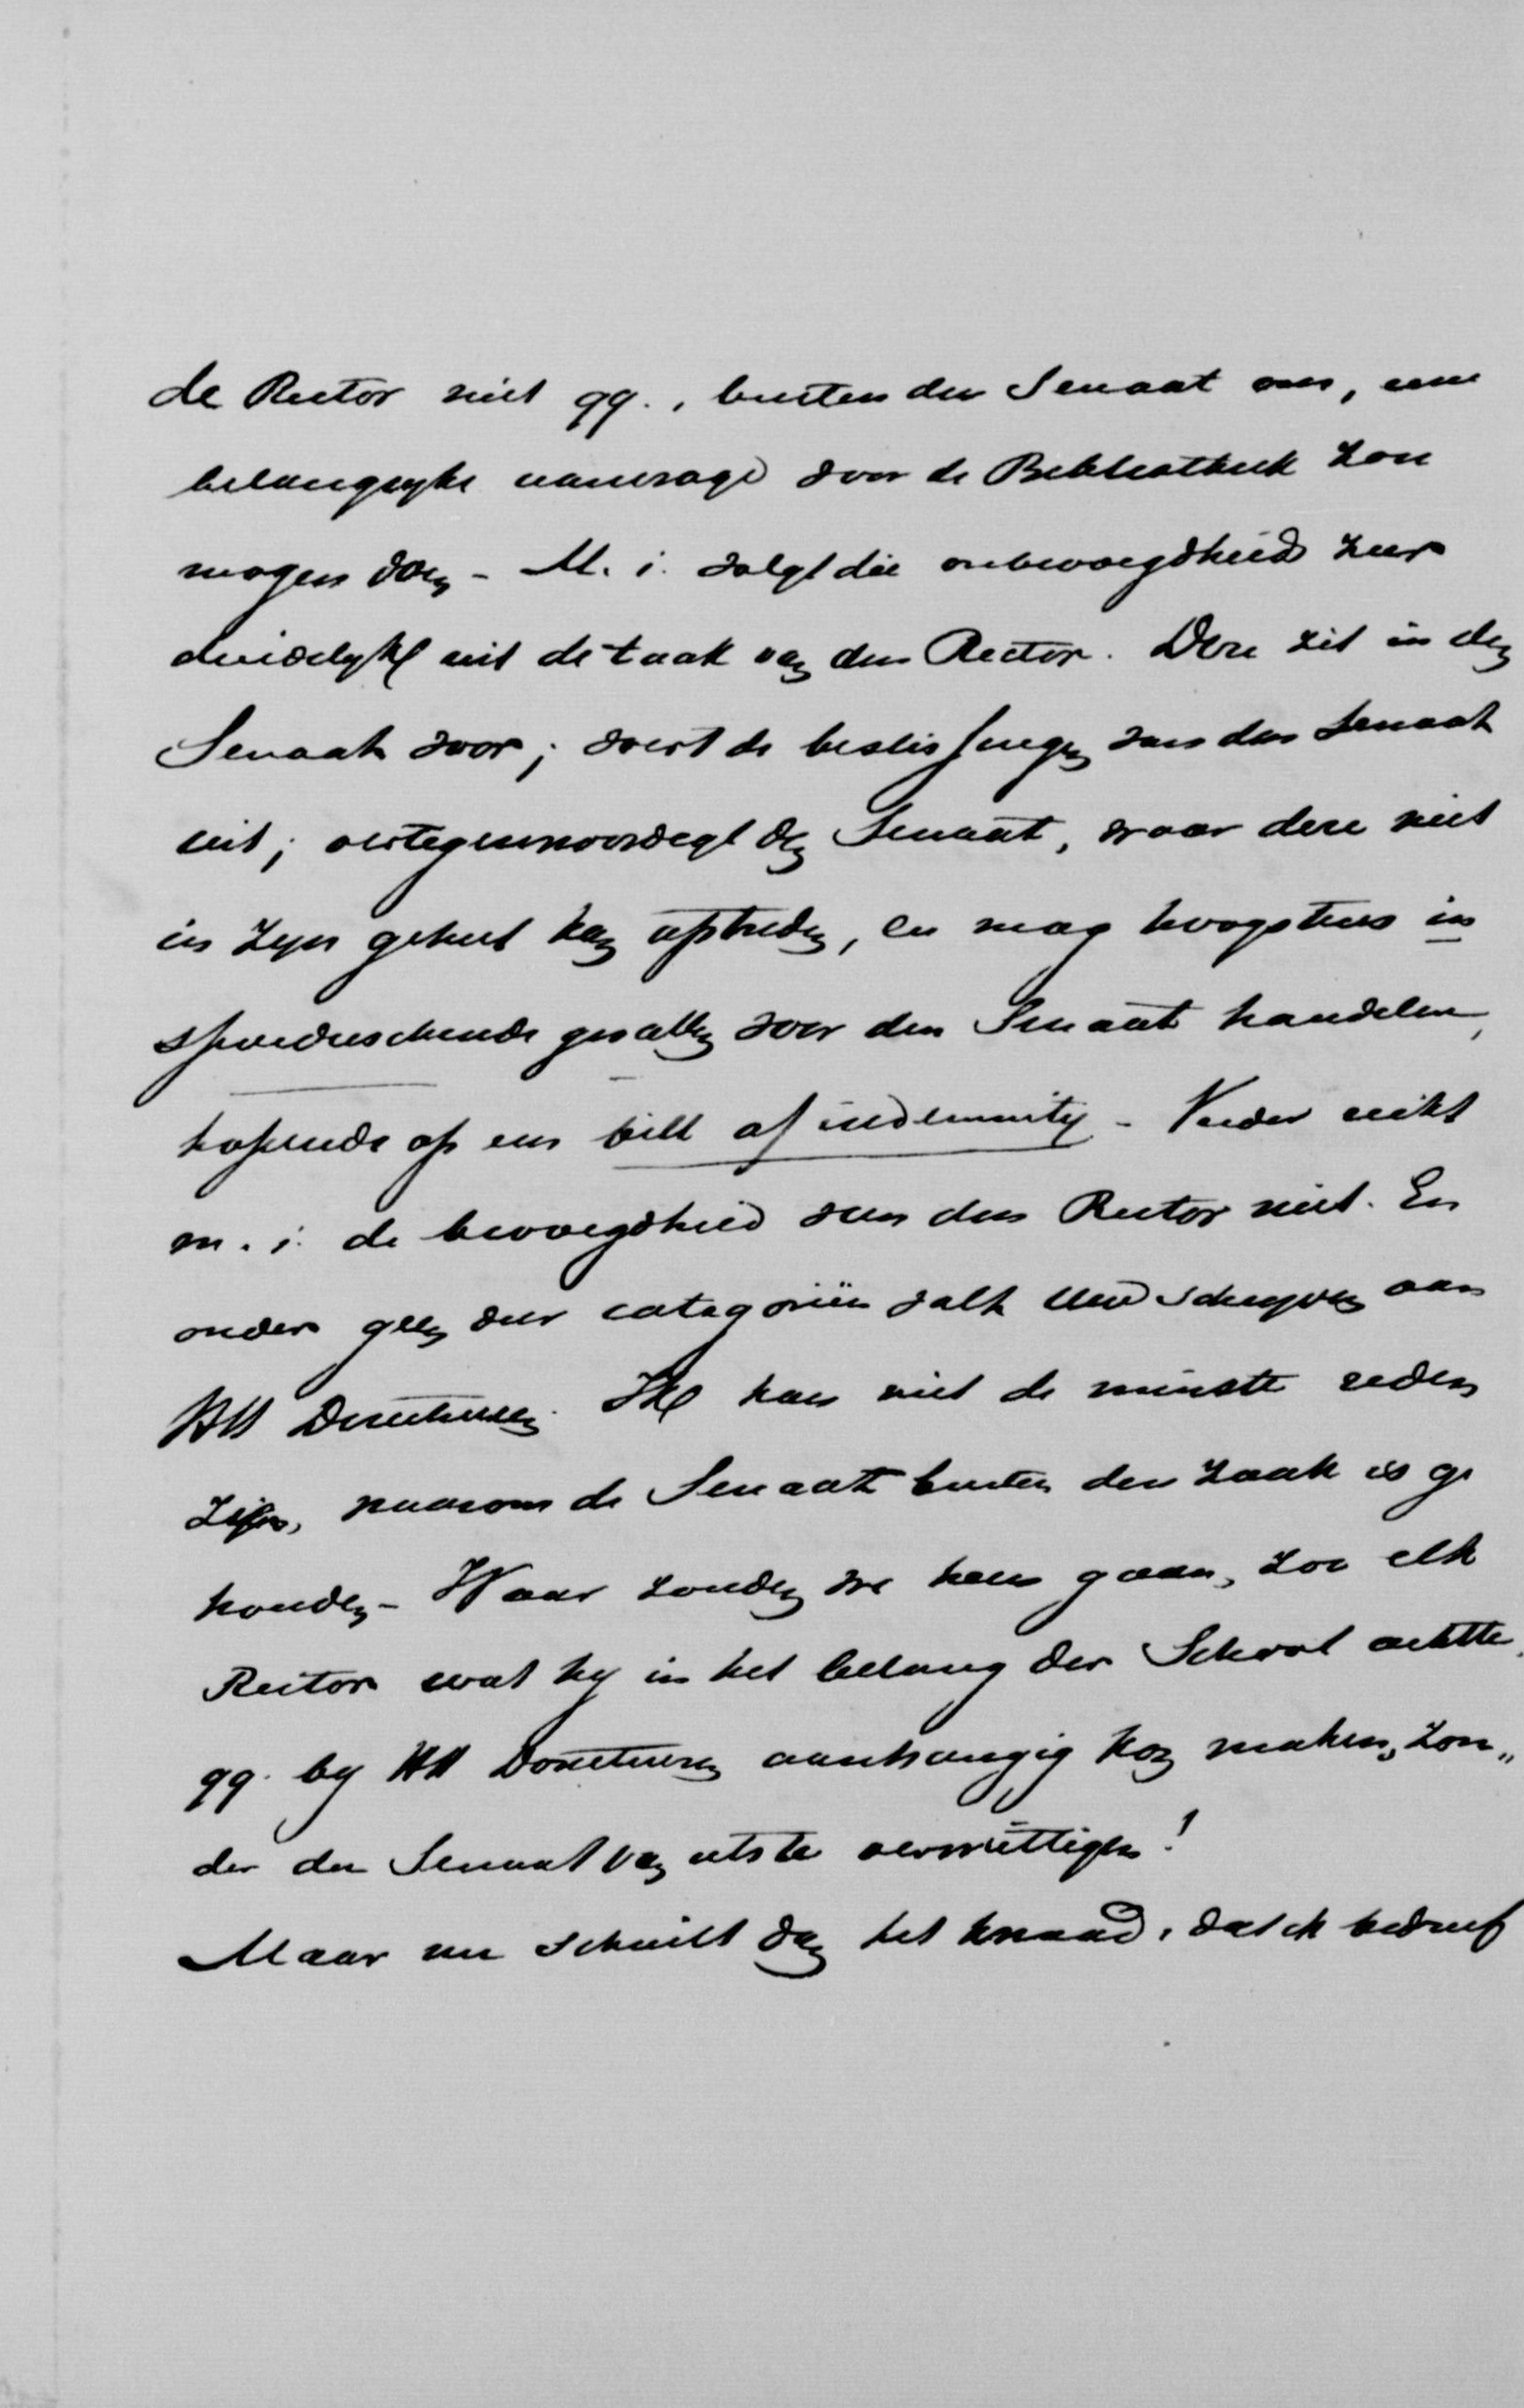 de Rector niet qq., buiten den Senaat om, eene
belangrijke aanvrage voor de Bibliotheek zou
mogen doen - M. i. volgt die onbevoegdheid zeer
duidelijk uit de taak van den Rector. Deze zit in den
Senaat voor; voert de beslissingen van den Senaat
uit; vertegenwoordigt den Senaat, waar deze niet
in zijn geheel kan optreden, en mag hoogstens in
spoedeischende gevallen voor den Senaat handelen,
hopende op een bill of indemnity - Verder reikt
m. i. de bevoegdheid van den Rector niet. En
onder geen der categoriën valt Uw schrijven aan
HH Directeuren. Ik kan niet de minste reden
zien, waarom de Senaat buiten den zaak is ge
houden - Waar zouden we heen gaan, zoo elk
Rector wat hij in het belang der School achtte,
qq. bij HH Directeuren aanhangig kon maken, zon„
der den Senaat van iets te verwittigen!
Maar nu schuilt dan het kwaad, dat ik bedroef